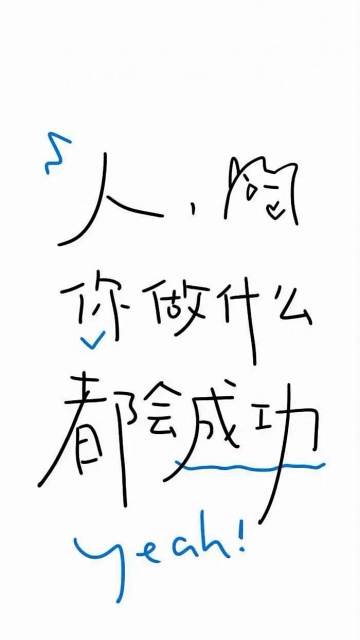 人，
你做什么
都会成功
yeah!